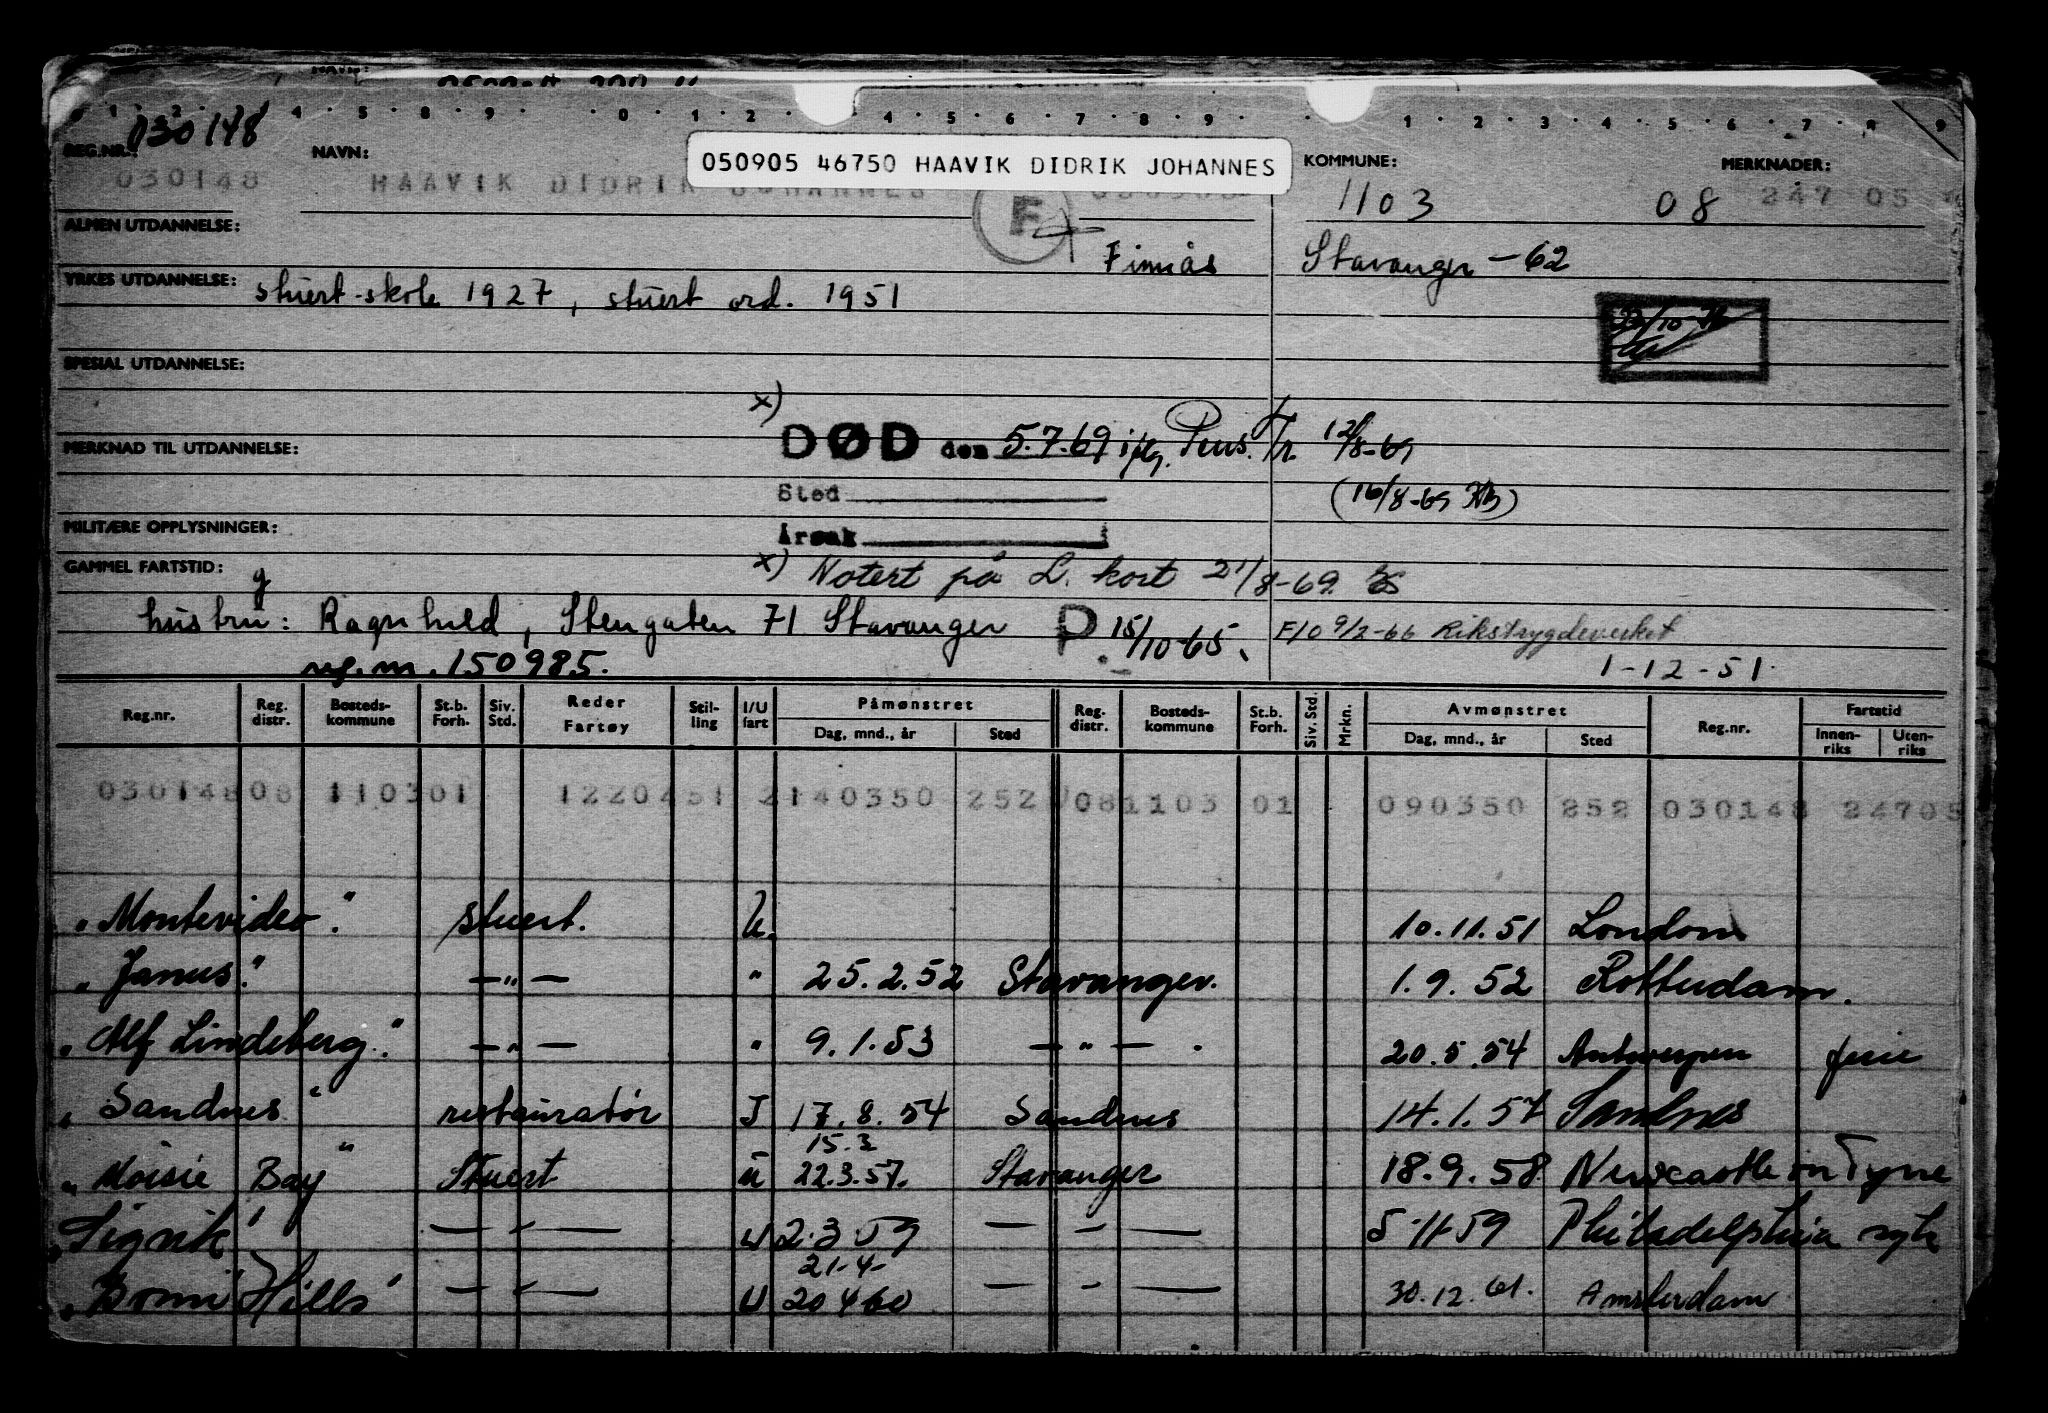 0 1 2 3 4 5 6 8 9 0 1 2 4 5 6 7 8 9 1 2 3 4 5 6 7 8 9
030148
REG.NR.: NAVN: 050905 46750 HAAVIK DIDRIK JOHANNES KOMMUNE: MERKNADER:
030148 HAAVIK DIDRIK JOHANNES 1103 08 247 05
ALMEN UTDANNELSE: F
Finnås Stavanger - 62
YRKES UTDANNELSE: stuert-skole 1927, stuert ord. 1951
SPESIAL UTDANNELSE:
x)
MERKNAD TIL UTDANNELSE: DØD den 5.7.69 iflg. Pens. Tr. 12/8-69
Sted (16/8-69)
MILITÆRE OPPLYSNINGER: Årsak
GAMMEL FARTSTID: x) Notert på L. kort 21/8-69.
g
hustru: Ragnhild, Stengaten 71 Stavanger P 15/10-65. F10 9/2-66 Rikstrygdeverket
reg.nr. 150985. 1-12-51.
Reg.nr. Reg. distr. Bosteds-kommune St.b. Forh. Siv. Std. Reder Fartøy Stil-ling I/U fart Påmønstret Dag, mnd., år Sted Reg. distr. Bosteds-kommune St.b. Forh. Siv. Std. Mrkn. Avmønstret Dag, mnd., år Sted Reg.nr. Fartstid Innen-riks Uten-riks
03014808 110301 1220451 2140350 252 081103 01 090350 252 030148 24705
"Montevideo." stuert. U. 10.11.51 London
"Janus." -"- " 25.2.52 Stavanger. 1.9.52 Rotterdam.
"Alf Lindeberg." -"- " 9.1.53 -"-. 20.5.54 Antwerpen ferie
"Sandnes" restauratør I 17.8.54 Sandnes 14.1.57 Sandnes
15.3
"Moisie Bay" Stuert u 22.3.57. Stavanger 18.9.58 Newcastle on Tyne
"Sigvik" -"- U 2.3 59 -"- 5-11-59 Philadelphia syk
21-4-
"Bomi Hills" -"- U 20 4 60 -"- 30.12.61. Amsterdam